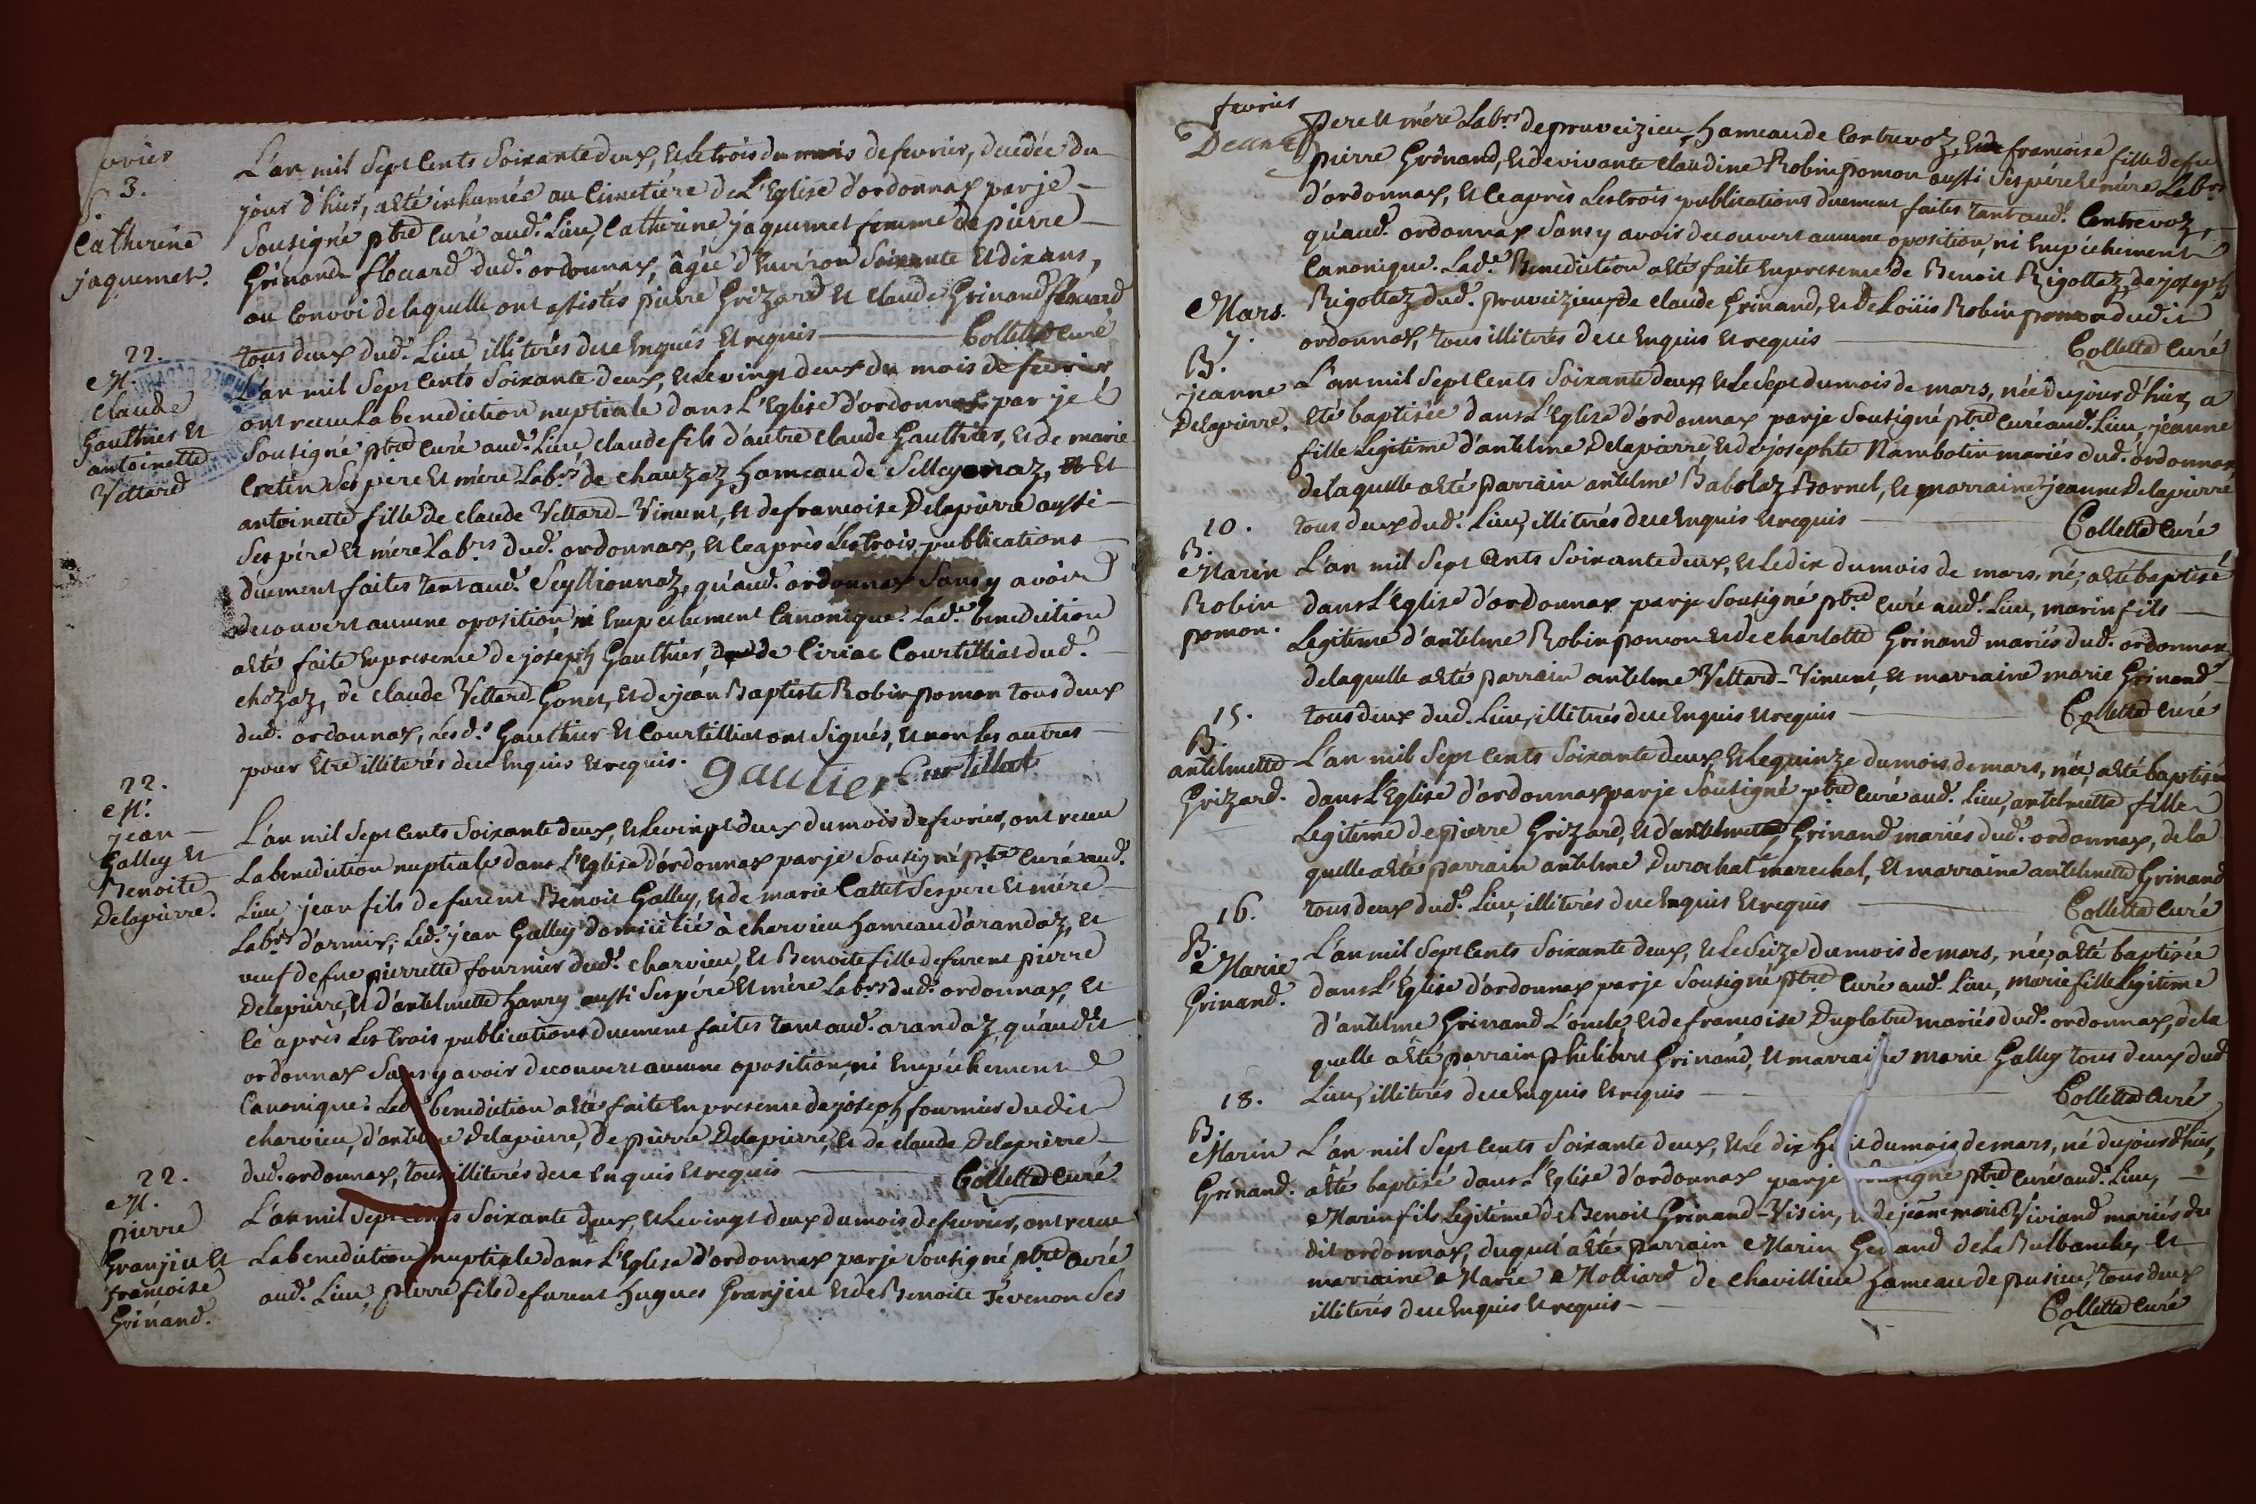 fevrier
3.
S.
Catherine
jaquemet.
L'an mil Sept Cents Soixante deux, et le trois du mois de fevrier, decedée du
jour d'hier, a eté inhumée au Cimetière de L'Eglise d'ordonnax par je
Soussigné ptre Curé aud. Lieu, Catherine jaquemet femme de pierre
Grinand flouard dud. ordonnax, âgée d'Environ Soixante et dix ans,
au Convoi de laquelle ont assistés pierre Grizard et claude Grinand flouard
tous deux dud. Lieu illiterés de ce Enquis et requis Collette Curé
22.
M.
Claude
Gauthier et
antoinette
Vettard
L'an mil Sept Cents Soixante deux, et le vingt deux du mois de fevrier
ont receu La benediction nuptiale dans L'Eglise d'ordonnax par je
Soussigné ptre Curé aud. Lieu, claude fils d'autre claude Gauthier, et de marie
Cretin Ses père et mère Labrs de chauzaz hameau de Selleyonaz, et
antoinette fille de claude Vettard-Vincent, et de francoise Delapierre aussi
Ses père et mère Labrs dud. ordonnax, et ce après Les trois publications
duement faites tant aud. Seyllionnaz, qu'aud. ordonnax Sans y avoir
decouvert aucune oposition, ni Empechement Canonique. Lad. benediction
a eté faite En presence de joseph Gauthier, de Ciriac Courtilliat dud.
chozaz, de claude Vettard-Gonet, et de jean Baptiste Robin pomon tous deux
dud. ordonnax, Lesd. Gauthier et Courtilliat ont Signés, et non les autres
pour Être illiterés de ce Enquis et requis. gautier Curtillat
22.
M.
jean
Galley et
Benoite
Delapierre.
L'an mil Sept Cents Soixante deux, et le vingt deux du mois de fevrier, ont receu
La benediction nuptiale dans L'Eglise d'ordonnax par je Soussigné ptre Curé aud.
Lieu, jean fils de furent Benoit Galley, et de marie Cattet Ses père et mère
Labrs d'armix, Led. jean Galley domicilié à charvieu hameau d'arandaz, et
veuf de fue pierrette fournier dud. charvieu, et Benoite fille de furent pierre
Delapierre, et d'antelmette hanry aussi Ses père et mère Labrs dud. ordonnax, et
ce après Les trois publications duement faites tant aud. arandaz, qu'audit
ordonnax Sans y avoir decouvert aucune oposition, ni Empechement
Canonique. Lad. benediction a eté faite En presence de joseph fournier dudit
charvieu, d'antelme Delapierre, de pierre Delapierre, et de claude Delapierre
dud. ordonnax, tous illiterés de ce Enquis et requis Collette Curé
22.
M.
pierre
Granjin et
francoise
Grinand.
L'an mil Sept Cents Soixante deux, et le vingt deux du mois de fevrier, ont receu
La benediction nuptiale dans L'Eglise d'ordonnax par je Soussigné ptre Curé
aud. Lieu, pierre fils de furent hugues Granjin et de Benoite Tevenon Ses
fevrier
père et mère Labrs de pruveizieu, hameau de Contrevoz, et de francoise fille de fu
pierre Grinand, et de vivante claudine Robin pomon aussi Ses père et mère Labrs
d'ordonnax, et ce après Les trois publications duement faites tant aud. Contrevoz,
qu'aud. ordonnax Sans y avoir decouvert aucune oposition, ni Empechement
Canonique. Lad. Benediction a eté faite En presence de Benoit Rigottaz, de joseph
Rigottaz dud. pruveizieu, de claude Grinand, et de Loüis Robin pomon dudit
ordonnax, tous illiterés de ce Enquis et requis Collette Curé
Mars.
7.
B.
jeanne
Delapierre.
L'an mil Sept Cents Soixante deux, et Le Sept du mois de mars, née du jour d'hier, a
eté baptisée dans L'Eglise d'ordonnax par je Soussigné ptre Curé aud. Lieu, jeanne
fille Legitime d'antelme Delapierre, et de josephte Nambotin mariés dud. ordonnax,
de laquelle a eté parrain antelme Babolaz Bornel, et marraine jeanne Delapierre
tous deux dud. Lieu, illiterés de ce Enquis et requis Collette Curé
10.
B.
Marin
Robin
pomon.
L'an mil Sept Cents Soixante deux, et Le dix du mois de mars, né, a eté baptisé
dans L'Eglise d'ordonnax par je Soussigné ptre Curé aud. Lieu, marin fils
Legitime d'antelme Robin pomon et de charlotte Grinand mariés dud. ordonnax
de laquelle a eté parrain antelme Vettard-Vincent, et marraine marie Grinand
tous deux dud. Lieu, illiterés de ce Enquis et requis Collette Curé
15.
B.
antelmette
Grizard.
L'an mil Sept Cents Soixante deux, et Le quinze du mois de mars, née, a eté baptisée
dans L'Eglise d'ordonnax par je Soussigné ptre Curé aud. Lieu, antelmette fille
Legitime de pierre Grizard, et d'antelmette Grinand mariés dud. ordonnax, de la
quelle a eté parrain antelme Durochat marechal, et marraine antelmette Grinand
tous deux dud. Lieu, illiterés de ce Enquis et requis Collette Curé
16.
B.
Marie
Grinand.
L'an mil Sept Cents Soixante deux, et Le Seize du mois de mars, née, a eté baptisée
dans L'Eglise d'ordonnax par je Soussigné ptre Curé aud. Lieu, marie fille Legitime
d'antelme Grinand L'oncle et de francoise Duplatre mariés dud. ordonnax, de la
quelle a eté parrain philibert Grinand, et marraine marie Galley tous deux dud.
Lieu, illiterés de ce Enquis et requis Collette Curé
18.
B.
Marin
Grinand.
L'an mil Sept Cents Soixante deux, et Le dix huit du mois de mars, né du jour d'hier,
a eté baptisé dans L'Eglise d'ordonnax par je Soussigné ptre Curé aud. Lieu,
Marin fils Legitime de Benoit Grinand-Visin, et de jeanne marie Viviand mariés du
dit ordonnax, duquel a eté parrain Marin Genand de La Bulbanche, et
marraine Marie Molliard de chavillieu hameau de pusieu, tous deux
illiterés de ce Enquis et requis Collette Curé